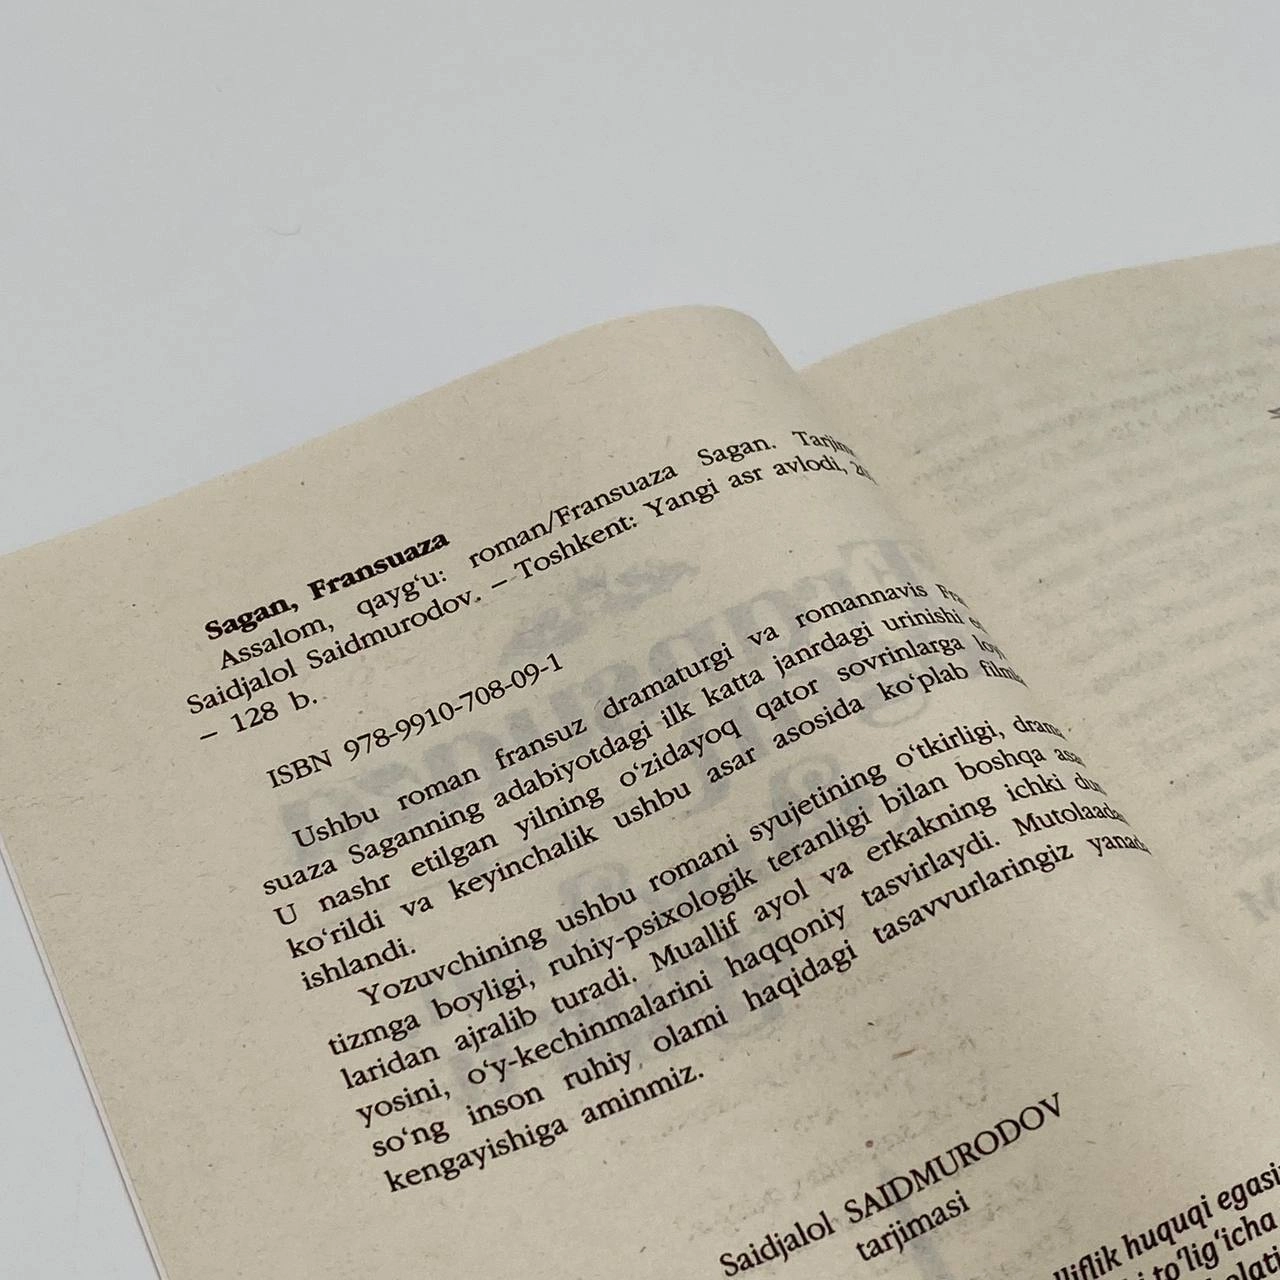 Sagan, Fransuaza
Assalom, qayg‘u: roman/Fransuaza Sagan.
Saidjalol Saidmurodov. – Toshkent: Yangi asr avlodi,
– 128 b.
ISBN 978-9910-708-09-1
Ushbu roman fransuz dramaturgi va romannavis
suaza Saganning adabiyotdagi ilk katta janrdagi urinishi
U nashr etilgan yilning o‘zidayoq qator sovrinlarga
ko‘rildi va keyinchalik ushbu asar asosida ko‘plab
ishlandi.
Yozuvchining ushbu romani syujetining o‘tkirligi,
tizmga boyligi, ruhiy-psixologik teranligi bilan boshqa
laridan ajralib turadi. Muallif ayol va erkakning ichki
yosini, o‘y-kechinmalarini haqqoniy tasvirlaydi.
so‘ng inson ruhiy olami haqidagi tasavvurlaringiz
kengayishiga aminmiz.
Saidjalol SAIDMURODOV
tarjimasi
huquqi
to‘lig‘icha